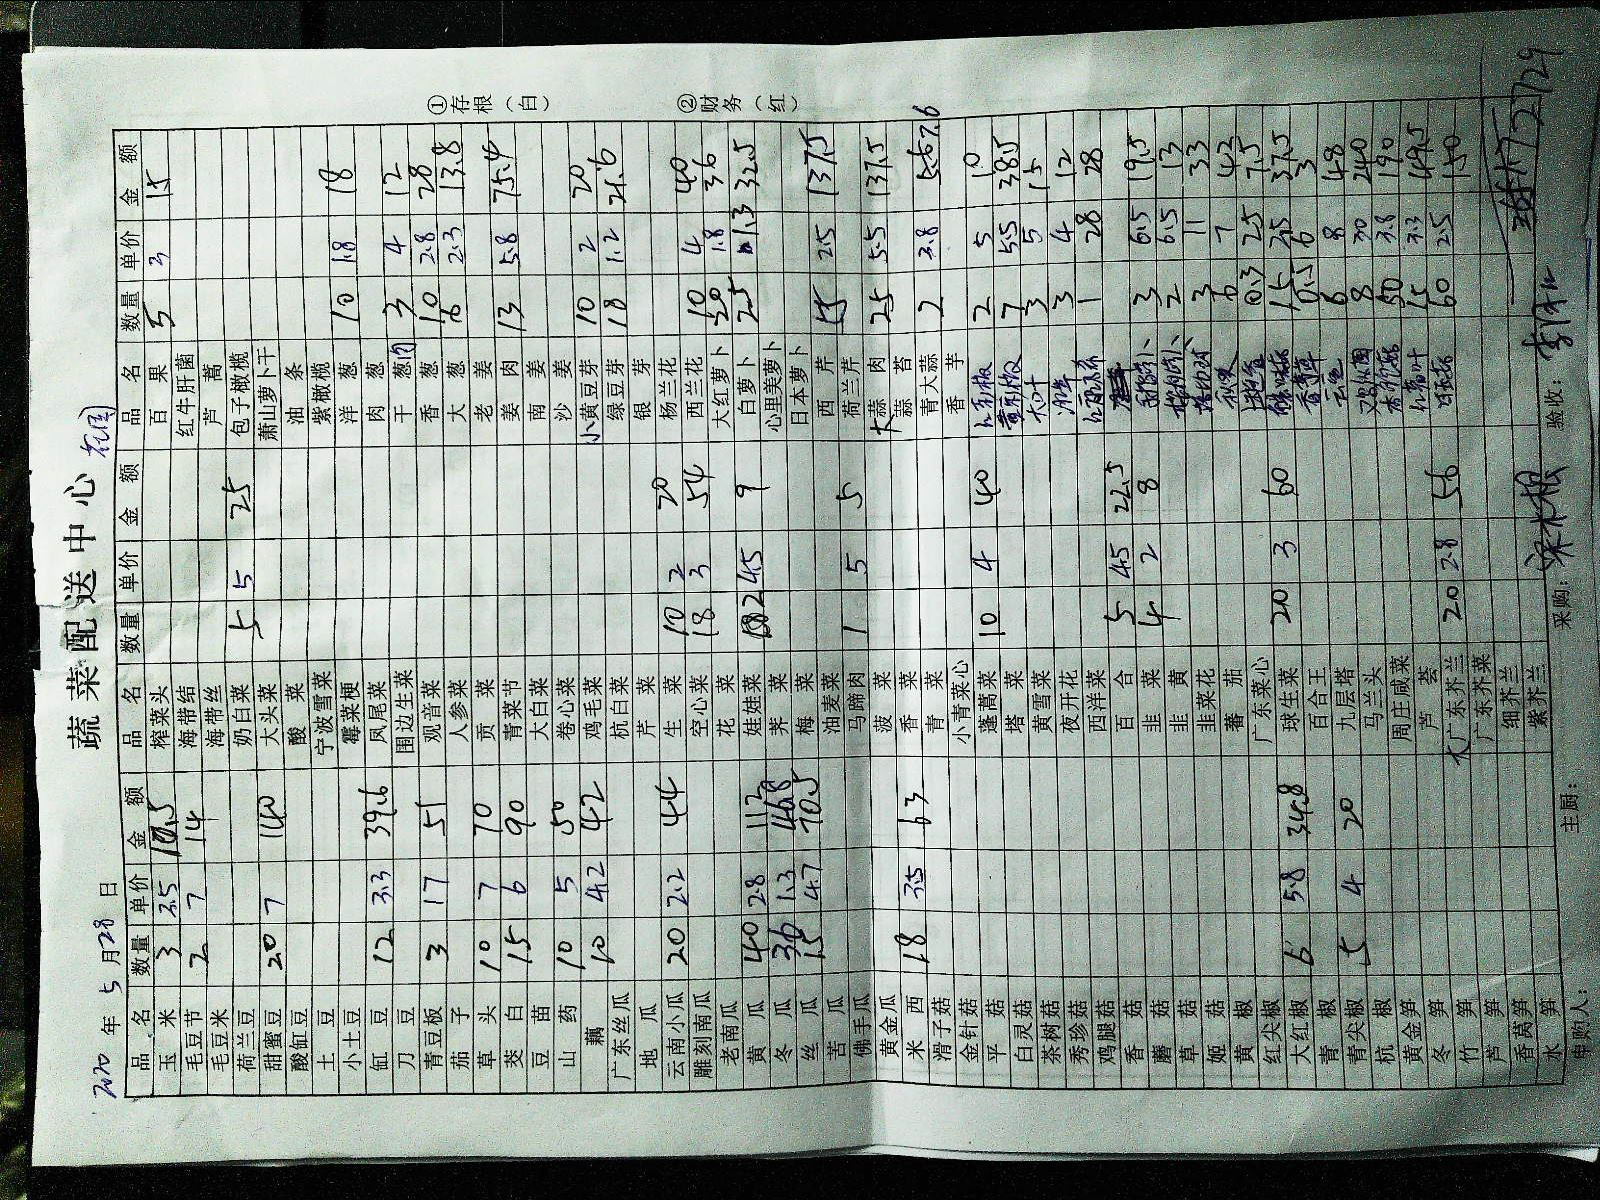 蔬菜配送中心
2020 年 5 月 28 日
品名 数量 单价 金额 品名 数量 单价 金额 品名 数量 单价 金额
玉米 3 3.5 10.5 榨菜头 百果 5 3 15
毛豆节 2 7 14 海带结 红牛肝菌
毛豆米 海带丝 芦蒿
荷兰豆 奶白菜 5 5 25 包子橄榄
甜蜜豆 20 7 140 大头菜 萧山萝卜干
酸缸豆 酸菜 油条
土豆 宁波雪菜 紫橄榄
小土豆 霉菜梗 洋葱 10 1.8 18
缸豆 12 3.3 39.6 凤尾菜 肉葱
刀豆 围边生菜 干葱肉 3 4 12
青豆板 3 17 51 观音菜 香葱 10 2.8 28
茄子 人参菜 大葱 6 2.3 13.8
草头 10 7 70 贡菜 老姜
茭白 15 6 90 青菜节 姜肉 13 5.8 75.4
豆苗 大白菜 南姜
山药 10 5 50 卷心菜 沙姜
藕 10 4.2 42 鸡毛菜 小黄豆芽 10 2 20
广东丝瓜 杭白菜 绿豆芽 18 1.2 21.6
地瓜 芹菜 银芽
云南小瓜 20 2.2 44 生菜 10 2 20 杨兰花 10 4 40
雕刻南瓜 空心菜 18 3 54 西兰花 20 1.8 36
老南瓜 花菜 大红萝卜 25 1.3 32.5
黄瓜 40 2.8 112 娃娃菜 2 4.5 9 白萝卜
冬瓜 36 1.3 46.8 荠菜 心里美萝卜
丝瓜 15 4.7 70.5 梅菜 日本萝卜
苦瓜 油麦菜 西芹 55 2.5 137.5
佛手瓜 马蹄肉 1 5 5 荷兰芹
黄金瓜 菠菜 大蒜肉 25 5.5 137.5
米西 18 3.5 63 香菜 蒜苔
滑子菇 青菜 青大蒜 2 3.8 7.6
金针菇 小青菜心 香芋
平菇 蓬蒿菜 10 4 40 2 5 10
白灵菇 塔菜 7 5.5 38.5
茶树菇 黄雪菜 3 5 15
秀珍菇 夜开花 3 4 12
鸡腿菇 西洋菜 1 28 28
香菇 百合 5 4.5 22.5
蘑菇 韭菜 4 2 8 3 6.5 19.5
草菇 韭黄 2 6.5 13
姬菇 韭菜花 3 11 33
黄椒 蕃茄 6 7 42
红尖椒 广东菜心 0.3 25 7.5
大红椒 6 5.8 34.8 球生菜 20 3 60 15 2.5 37.5
青椒 百合王 0.5 6 3
青尖椒 5 4 20 九层塔 6 8 48
杭椒 马兰头 8 30 240
黄金笋 周庄咸菜 50 3.8 190
冬笋 芦荟 15 3.3 49.5
竹笋 大广东芥兰 20 2.8 56 60 2.5 150
芦笋 广东芥菜
香莴笋 细芥兰
水笋 紫芥兰
申购人： 主厨： 采购： 验收：
2729
①存根（白）
②财务（红）